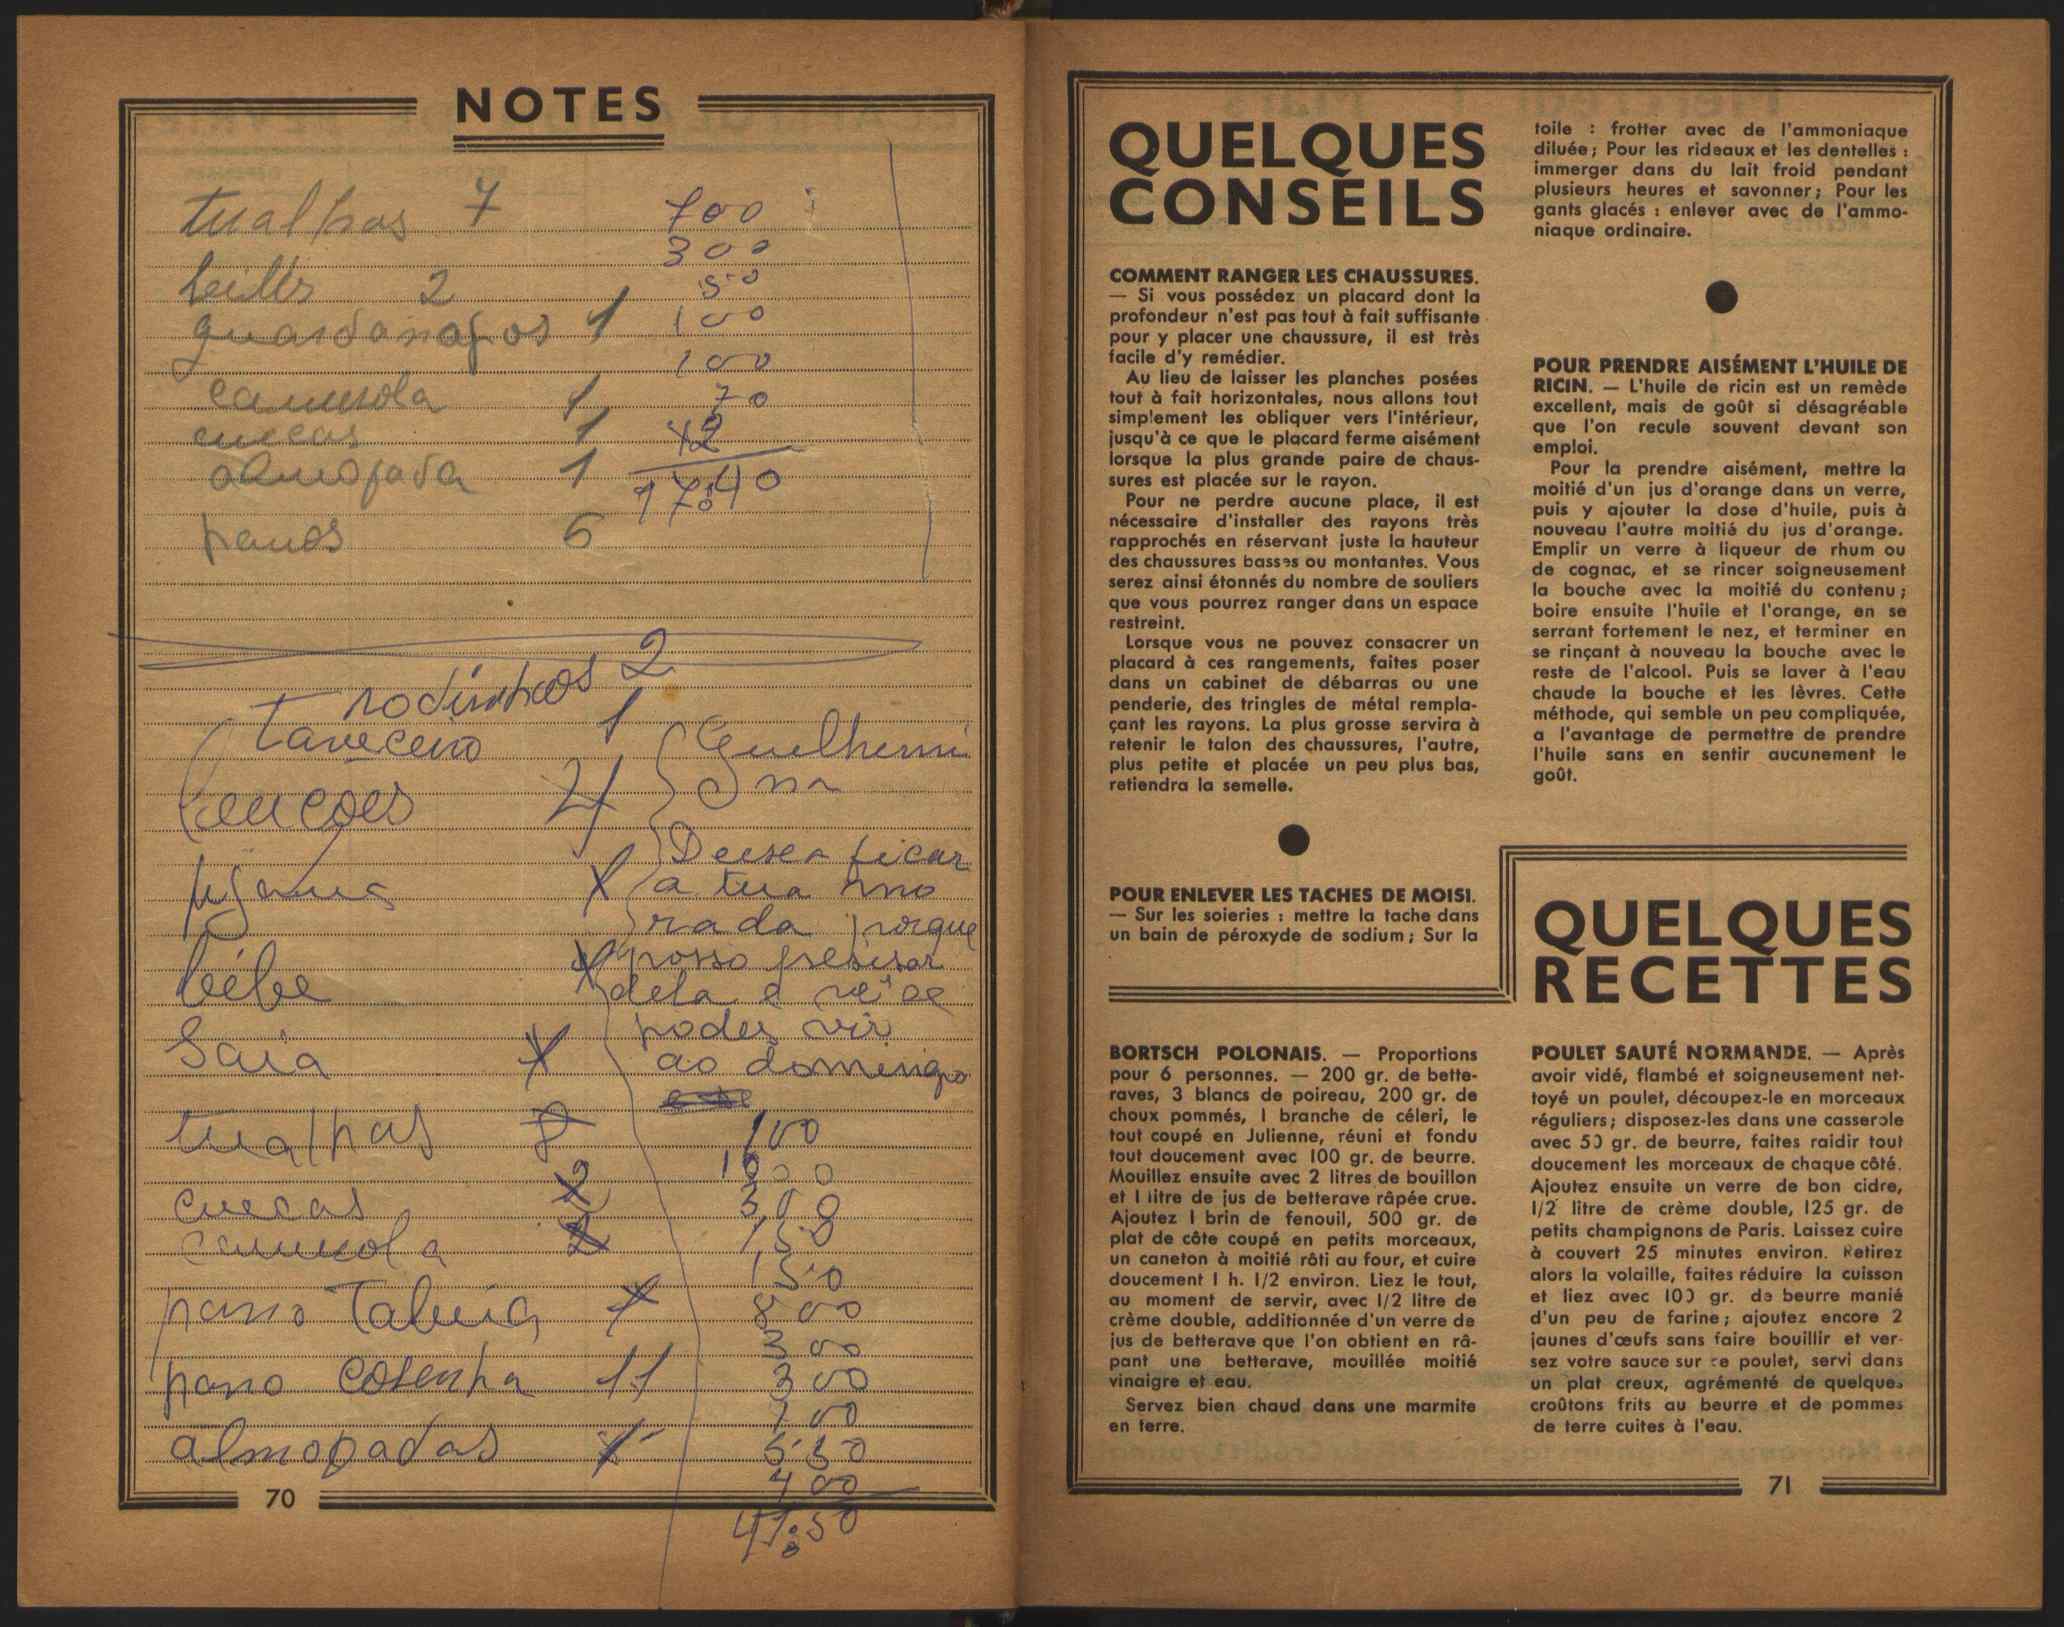 NOTES
tualhas 7
2
guardanapos 1
camisola 1
cuecas 1
almofada 1
panos 6
700
300
50
100
100
70
17$40
rodinhos 2
1
lençoes 4
pijama
bébe
Saia
tualhas
cuecas 2
camisola 2
pano
pano cosenha 11
almofadas
Guelhermi
na
Deixa ficar
a tua mo
rada porque
posso presisar
dela e vê se
podes vir
ao domingo
100
300
150
150
800
300
300
400
70
QUELQUES
CONSEILS
COMMENT RANGER LES CHAUSSURES.
— Si vous possédez un placard dont la
profondeur n'est pas tout à fait suffisante
pour y placer une chaussure, il est très
facile d'y remédier.
Au lieu de laisser les planches posées
tout à fait horizontales, nous allons tout
simplement les obliquer vers l'intérieur,
jusqu'à ce que le placard ferme aisément
lorsque la plus grande paire de chaus-
sures est placée sur le rayon.
Pour ne perdre aucune place, il est
nécessaire d'installer des rayons très
rapprochés en réservant juste la hauteur
des chaussures basses ou montantes. Vous
serez ainsi étonnés du nombre de souliers
que vous pourrez ranger dans un espace
restreint.
Lorsque vous ne pouvez consacrer un
placard à ces rangements, faites poser
dans un cabinet de débarras ou une
penderie, des tringles de métal rempla-
çant les rayons. La plus grosse servira à
retenir le talon des chaussures, l'autre,
plus petite et placée un peu plus bas,
retiendra la semelle.
POUR ENLEVER LES TACHES DE MOISI.
— Sur les soieries : mettre la tache dans
un bain de péroxyde de sodium; Sur la
toile : frotter avec de l'ammoniaque
diluée; Pour les rideaux et les dentelles :
immerger dans du lait froid pendant
plusieurs heures et savonner; Pour les
gants glacés : enlever avec de l'ammo-
niaque ordinaire.
POUR PRENDRE AISÉMENT L'HUILE DE
RICIN. — L'huile de ricin est un remède
excellent, mais de goût si désagréable
que l'on recule souvent devant son
emploi.
Pour la prendre aisément, mettre la
moitié d'un jus d'orange dans un verre,
puis y ajouter la dose d'huile, puis à
nouveau l'autre moitié du jus d'orange.
Emplir un verre à liqueur de rhum ou
de cognac, et se rincer soigneusement
la bouche avec la moitié du contenu;
boire ensuite l'huile et l'orange, en se
serrant fortement le nez, et terminer en
se rinçant à nouveau la bouche avec le
reste de l'alcool. Puis se laver à l'eau
chaude la bouche et les lèvres. Cette
méthode, qui semble un peu compliquée,
a l'avantage de permettre de prendre
l'huile sans en sentir aucunement le
goût.
QUELQUES
RECETTES
BORTSCH POLONAIS. — Proportions
pour 6 personnes. — 200 gr. de bette-
raves, 3 blancs de poireau, 200 gr. de
choux pommés, 1 branche de céleri, le
tout coupé en Julienne, réuni et fondu
tout doucement avec 100 gr. de beurre.
Mouillez ensuite avec 2 litres de bouillon
et 1 litre de jus de betterave râpée crue.
Ajoutez 1 brin de fenouil, 500 gr. de
plat de côte coupé en petits morceaux,
un caneton à moitié rôti au four, et cuire
doucement 1 h. 1/2 environ. Liez le tout,
au moment de servir, avec 1/2 litre de
crème double, additionnée d'un verre de
jus de betterave que l'on obtient en râ-
pant une betterave, mouillée moitié
vinaigre et eau.
Servez bien chaud dans une marmite
en terre.
POULET SAUTÉ NORMANDE. — Après
avoir vidé, flambé et soigneusement net-
toyé un poulet, découpez-le en morceaux
réguliers; disposez-les dans une casserole
avec 50 gr. de beurre, faites raidir tout
doucement les morceaux de chaque côté.
Ajoutez ensuite un verre de bon cidre,
1/2 litre de crème double, 125 gr. de
petits champignons de Paris. Laissez cuire
à couvert 25 minutes environ. Retirez
alors la volaille, faites réduire la cuisson
et liez avec 100 gr. de beurre manié
d'un peu de farine; ajoutez encore 2
jaunes d'œufs sans faire bouillir et ver-
sez votre sauce sur ce poulet, servi dans
un plat creux, agrémenté de quelques
croûtons frits au beurre et de pommes
de terre cuites à l'eau.
71